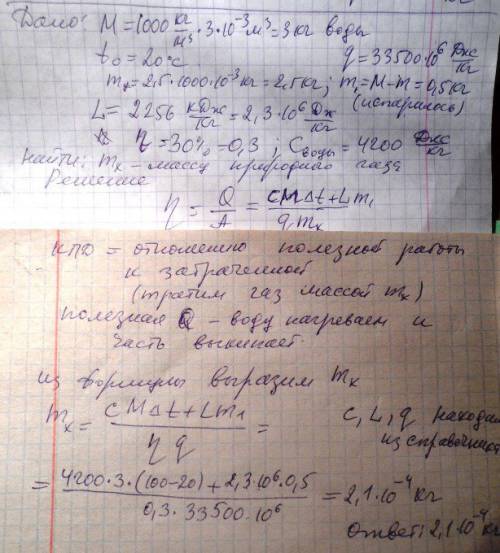 Дано: M = 1000 кг/м³ · 3·10⁻³ м³ = 3 кг воды
t₀ = 20°C q = 33500·10⁶ Дж/кг
m = 2,5·1000·10⁻³ кг = 2,5 кг; m₁ = M - m = 0,5 кг
L = 2256 кДж/кг = 2,3·10⁶ Дж/кг (испарилось)
η = 30% = 0,3; C воды = 4200 Дж/кг
Найти: mₓ - массу природного газа
Решение
η = Q/A = (cMΔt + Lm₁)/(q mₓ)
КПД = отношению полезной работы
к затраченной
(тратим газ массой mₓ)
полезная Q - воду нагреваем и
часть выкипает.
из формулы выразим mₓ
mₓ = (cMΔt + Lm₁)/(η q) = c, L, q находим
из справочника
= (4200·3·(100-20) + 2,3·10⁶·0,5)/(0,3·33500·10⁶) = 2,1·10⁻⁴ кг
ответ: 2,1·10⁻⁴ кг